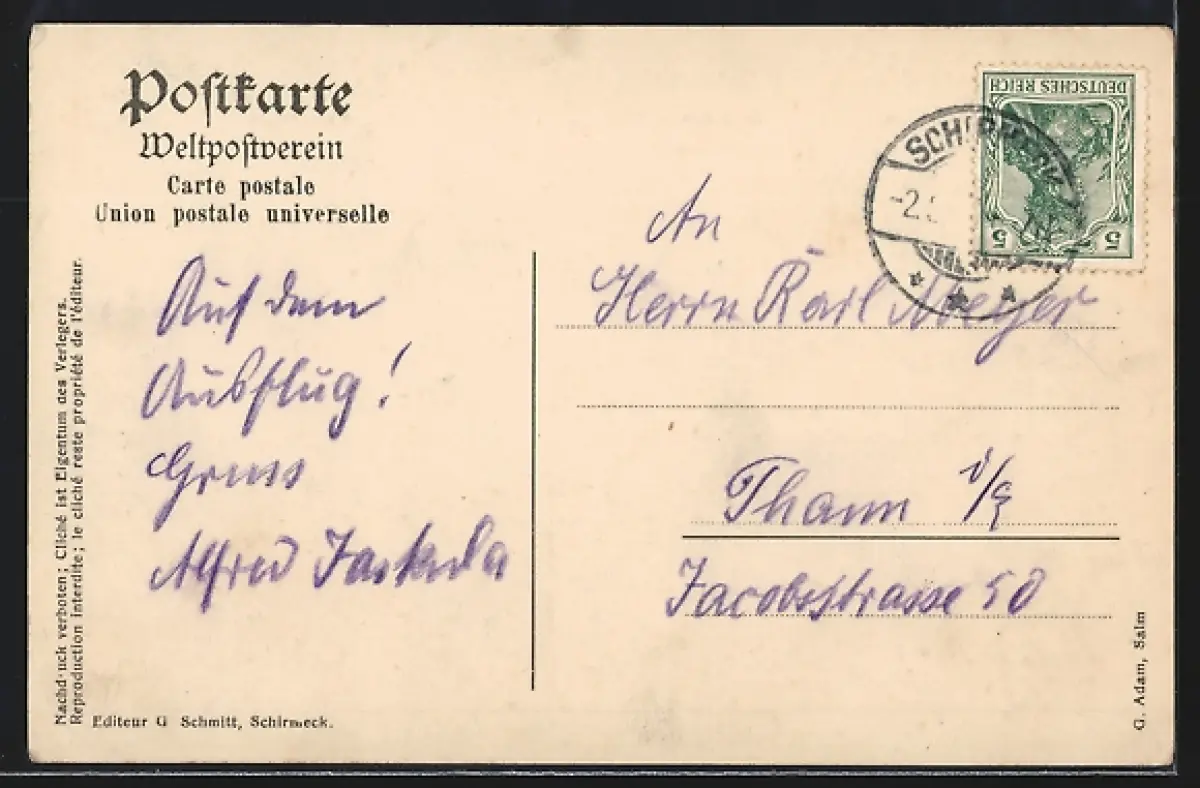 Postkarte
Weltpostverein
Carte postale
Union postale universelle
Auf dem
Ausflug!
Gruss
Alfred
Nachdruck verboten; Cliché ist Eigentum des Verlegers.
Reproduction interdite; le cliché reste propriété de l'éditeur.
Editeur G Schmitt, Schirmeck.
DEUTSCHES REICH
5 5
SCHIRMECK
-2.
An
Herrn Karl Meyer
Thann i/E
Jacobsstrasse 50
G. Adam, Salm